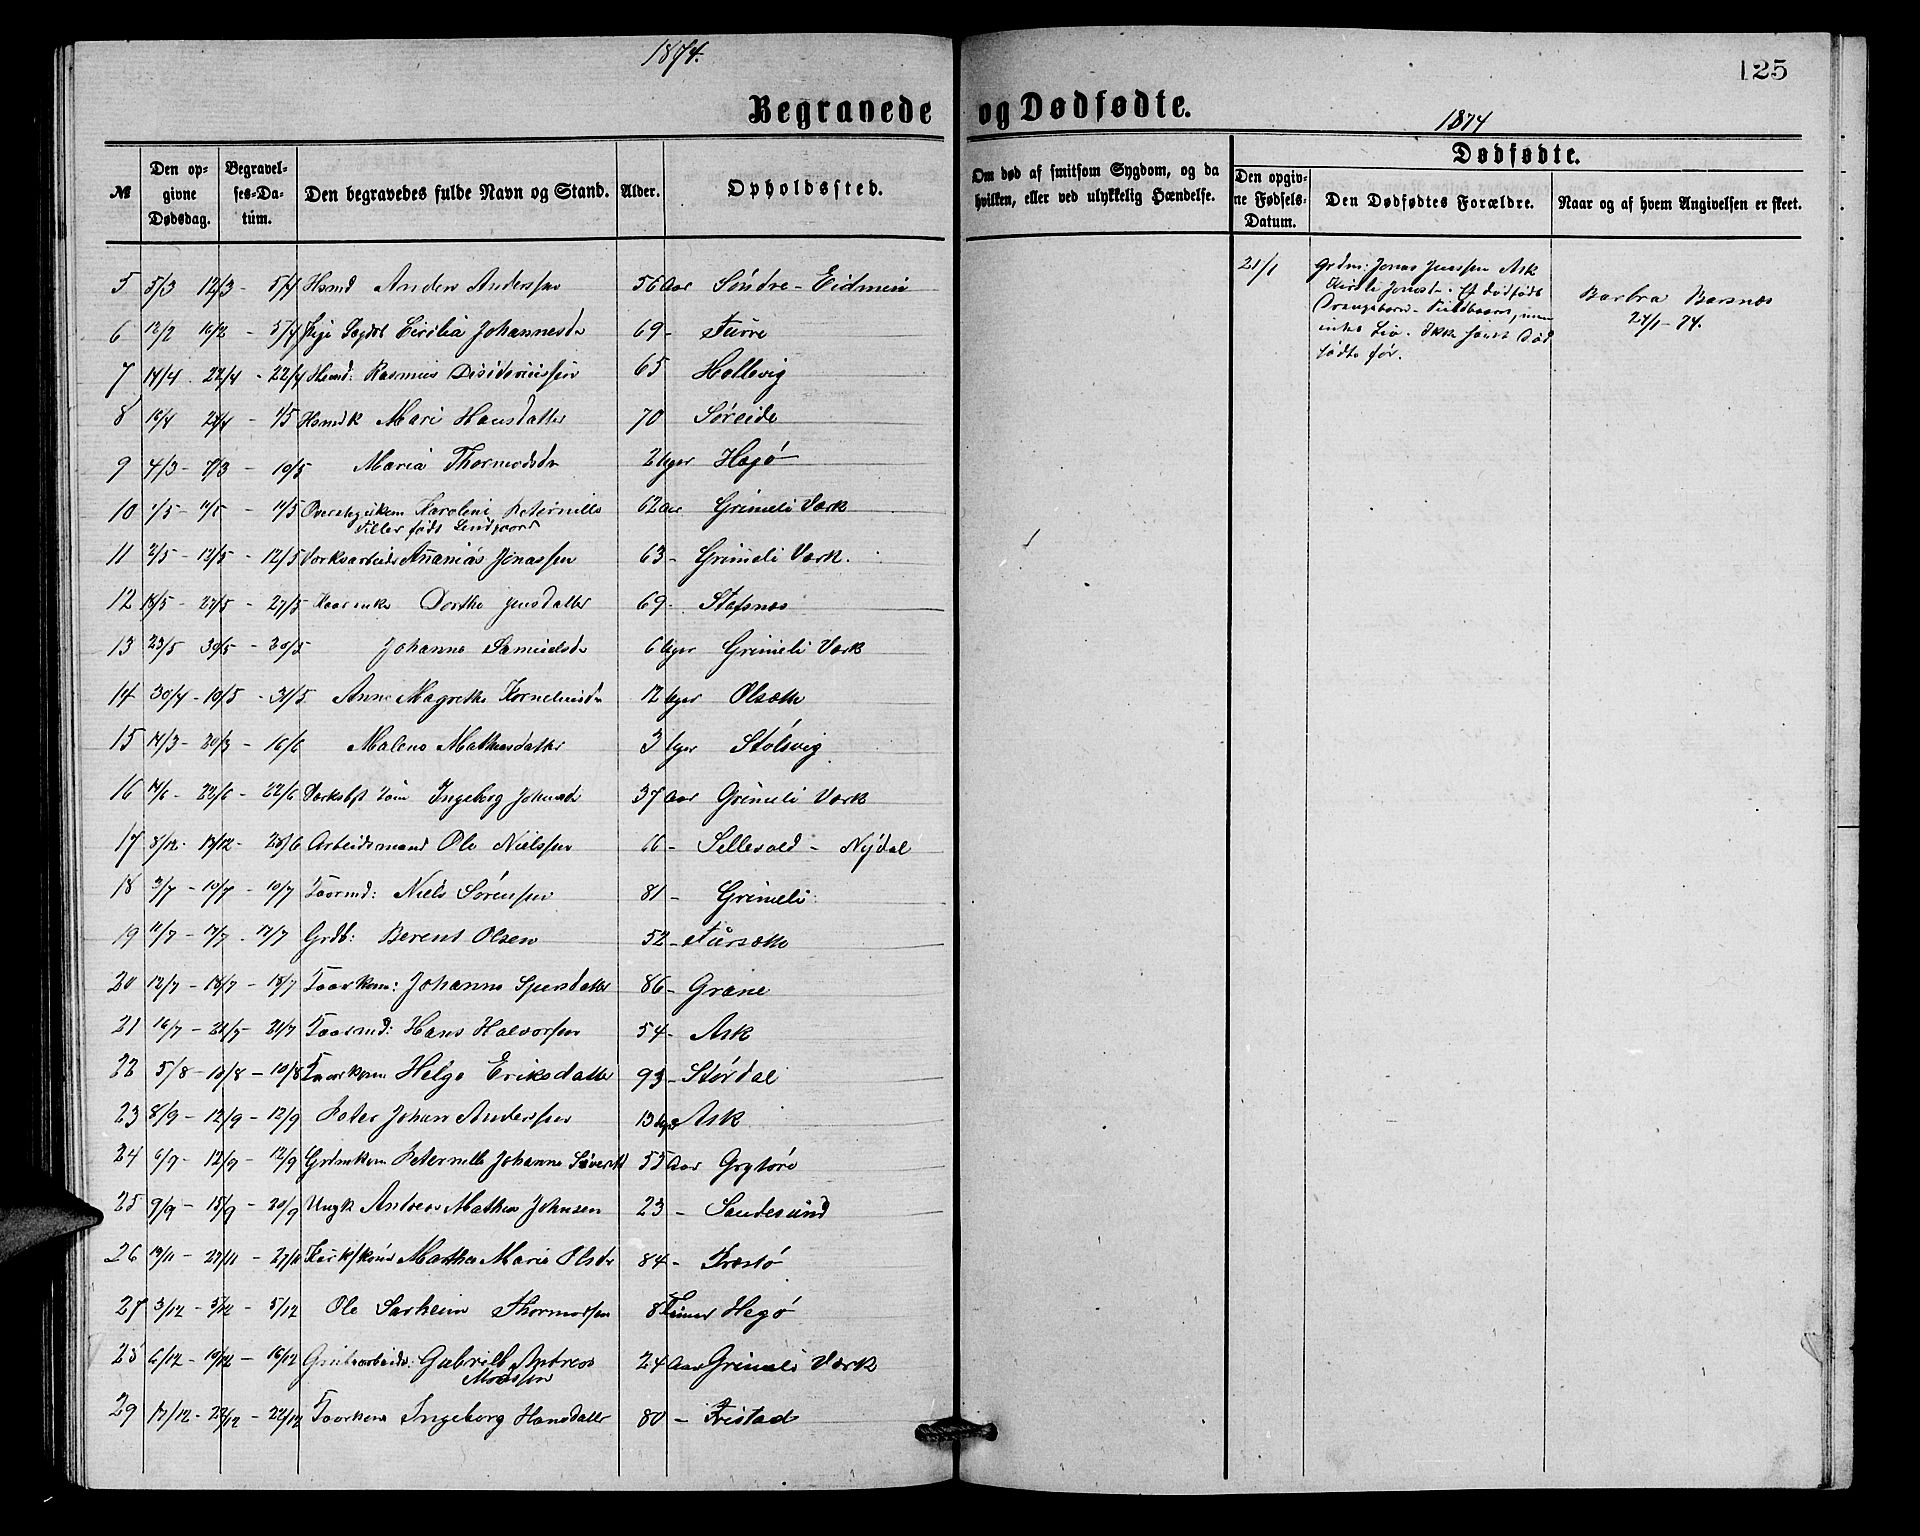 1874.
125
Begravede og Dødfødte.
1874
№ Den opgivne Dødsdag. Begravelses-Datum. Den begravedes fulde Navn og Stand. Alder. Opholdssted. Om død af smitsom Sygdom, og da hvilken, eller ved ulykkelig Hændelse.
Dødfødte.
Den opgivne Fødsels-Datum. Den Dødfødtes Forældre. Naar og af hvem Angivelsen er skeet.
5 5/3 12/3 - 5/4 Hsmd Anders Anderssen 56 Aar Søndre - Eidmen
6 12/2 16/2 - 5/4 Cecilia Johannesdr 69 - Furre
7 14/4 . 22/4 - 22/4 Hsmd: Rasmus Disideriussen 65 Hellevig
8 16/4 24/4 - 1/5 Hsmdk Mari Hansdatter 70 Søreide
9 4/3 - 7/3 - 10/5 Maria Thormodsdr 2 Uger Hegø
10 1/5 - 11/5 - 11/5 Karoline Peternille 62 Aar Grimeli Værk
Tiller født
11 2/5 - 12/5 - 12/5 Værksarbeider Ananias Jonassen 63 - Grimeli Værk.
12 18/5 - 27/5 - 27/5 Dorthe Jensdatter 69 - Stafsnæs
13 23/5 30/5 - 30/5 Johanne Samuelsdr 6 Uger Grimeli Værk
14 30/4 - 10/5 - 31/5 Anne Magrethe Korneliusdr 12 Uger Olsæth
15 14/3 - 20/3 - 16/6 Malene Mathiasdatter 3 Uger Stølsvig
16 14/6 - 22/6 - 22/6 Ingeborg Johnsdr 37 Aar Grimeli Værk
17 8/12 - 13/12 - 28/6 Arbeidsmand Ole Nielssen 66 - Sellevold - Nydal
18 3/7 - 10/7 - 10/7 Kaarmd: Niels Sørenssen 81 - Grimeli
19 11/7 - 17/7 - 17/7 Grdb: Berent Olsen 52 - Fursæth
20 12/7 - 18/7 - 18/7 Kaarkone: Johanne Spersdatter 86 - Grane
21 16/7 - 21/7 - 21/7 Kaarmd: Hans Halvorssen 54 - Ask
22 5/8 - 10/8 - 10/8 Kaarkone Helge Eriksdatter 93 - Størdal
23 8/9 - 12/9 - 12/9 Peter Johan Anderssen 13 Uger Ask
24 6/9 - 12/9 - 12/9 Grdmkone Peternille Johanne Siversd 55 Aar Grytøre
25 9/9 - 15/9 - 20/9 Ungk Andreas Mathias Johnsen 23 - Sandesund
26 19/11 - 27/11 - 27/11 Martha Maria Olsdr 84 - Præstø
27 3/12 - 5/12 - 5/12 Ole Thormodssen 8 Timer Hegø
28 6/12 - 16/12 - 16/12 Grubearbeider: Gabriel Andreas 24 Aar Grimeli Værk
Monssen
29 17/12 - 22/12 - 22/12 Kaarkone Ingeborg Hansdatter 80 - Fristad
21/1 Grdm: Jonas Jenssen Ask
Jonsd. Et dødfødt
Drengebarn -
intet Liv. Ikke
fødte før.
Barbra Barsnæs
27/1 - 74.